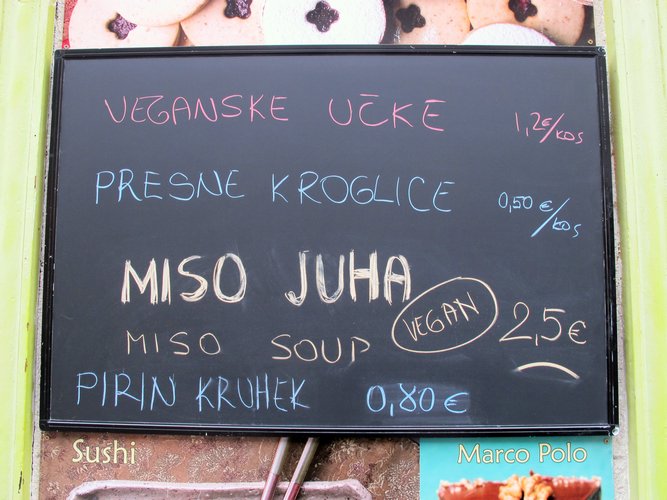 VEGANSKE UČKE 1,2€/KOS
PRESNE KROGLICE 0,50€/KOS
MISO JUHA
MISO SOUP VEGAN 2,5€
PIRIN KRUHEK 0,80€
Sushi Marco Polo